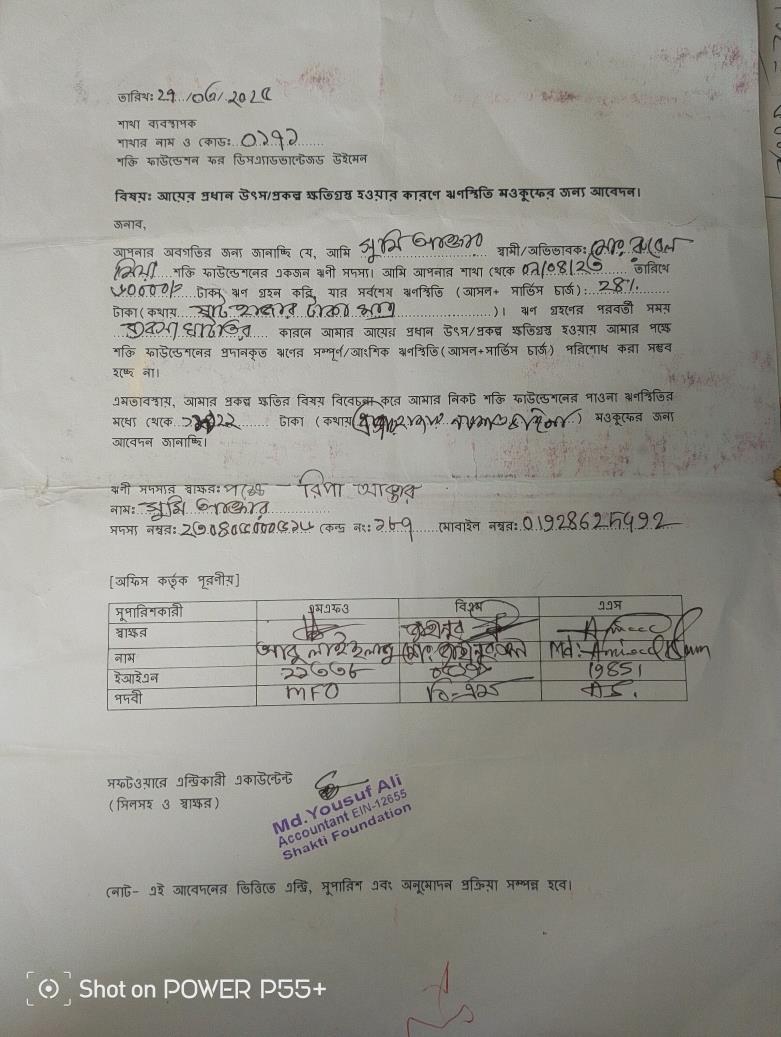 তারিখ: 29/06/2025
শাখা ব্যবস্থাপক
শাখার নাম ও কোড: ০১৭১
শক্তি ফাউন্ডেশন ফর ডিসএ্যাডভান্টেজড উইমেন
বিষয়: আয়ের প্রধান উৎস/প্রকল্প ক্ষতিগ্রস্ত হওয়ার কারণে ঋণস্থিতি মওকুফের জন্য আবেদন।
জনাব,
আপনার অবগতির জন্য জানাচ্ছি যে, আমি সুমি আক্তার স্বামী/অভিভাবক: মোঃ রুবেল
মিয়া শক্তি ফাউন্ডেশনের একজন ঋণী সদস্য। আমি আপনার শাখা থেকে তারিখে
টাকা ঋণ গ্রহন করি, যার সর্বশেষ ঋণস্থিতি (আসল+ সার্ভিস চার্জ):
টাকা (কথায় ষাট হাজার টাকা মাত্র)। ঋণ গ্রহণের পরবর্তী সময়
ব্যবসা ঘাটতির কারনে আমার আয়ের প্রধান উৎস/প্রকল্প ক্ষতিগ্রস্ত হওয়ায় আমার পক্ষে
শক্তি ফাউন্ডেশনের প্রদানকৃত ঋণের সম্পূর্ণ/আংশিক ঋণস্থিতি (আসল+সার্ভিস চার্জ) পরিশোধ করা সম্ভব
হচ্ছে না।
এমতাবস্থায়, আমার প্রকল্প ক্ষতির বিষয় বিবেচনা করে আমার নিকট শক্তি ফাউন্ডেশনের পাওনা ঋণস্থিতির
মধ্যে থেকে টাকা (কথায়) মওকুফের জন্য
আবেদন জানাচ্ছি।
ঋণী সদস্যর স্বাক্ষর: পক্ষে - রিপা আক্তার
নাম: সুমি আক্তার
সদস্য নম্বর: কেন্দ্র নং: ২৮৭ মোবাইল নম্বর: 01928625492
[অফিস কর্তৃক পূরণীয়]
সুপারিশকারী এমএফও বিএম এএস
স্বাক্ষর
নাম Md:
ইআইএন 19851
পদবী MFO বি-এম A.S.
সফটওয়ারে এন্ট্রিকারী একাউন্টেন্ট
(সিলসহ ও স্বাক্ষর)
Md.Yousuf Ali
Accountant EIN-12655
Shakti Foundation
নোট- এই আবেদনের ভিত্তিতে এন্ট্রি, সুপারিশ এবং অনুমোদন প্রক্রিয়া সম্পন্ন হবে।
Shot on POWER P55+